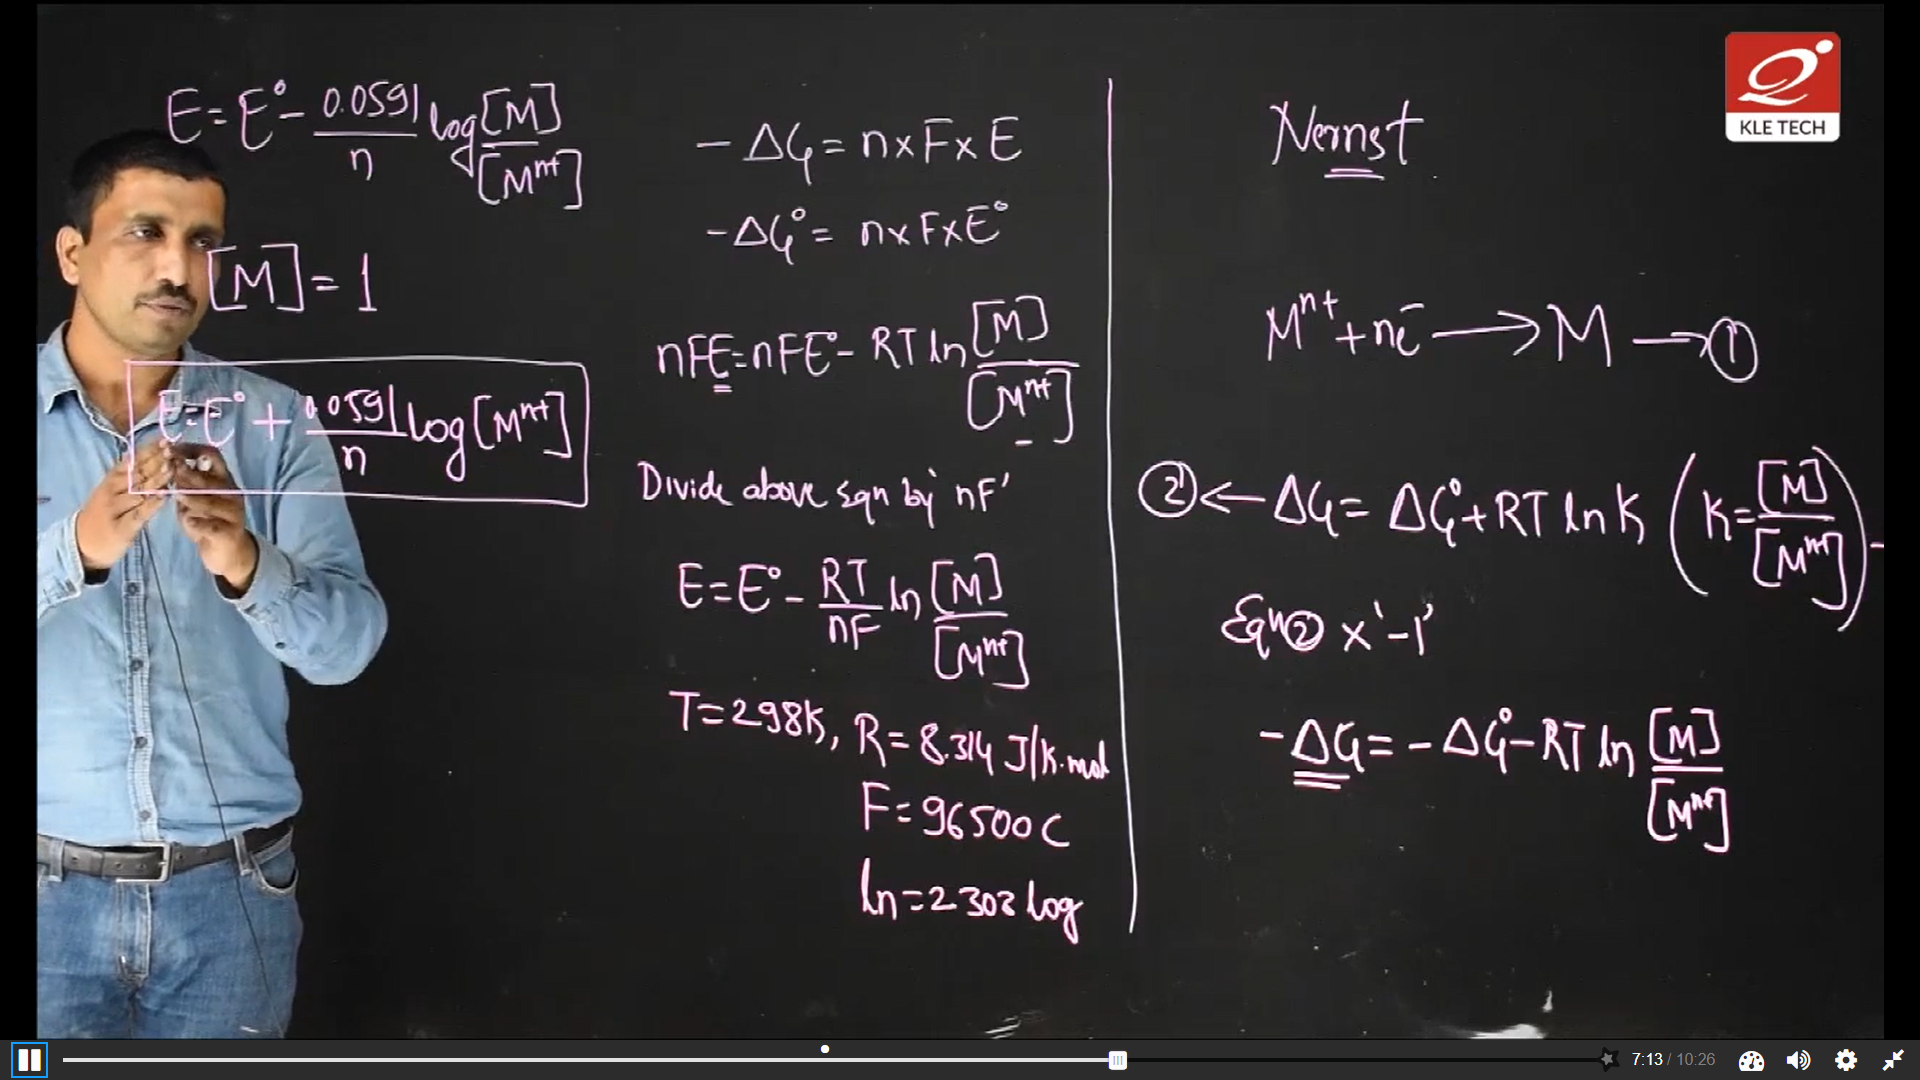 E = E° - 0.0591/n log [M]/[Mⁿ⁺]
[M] = 1
E = E° + 0.0591/n log [Mⁿ⁺]
- ΔG = n x F x E
- ΔG° = n x F x E°
nFE = nFE° - RT ln [M]/[Mⁿ⁺]
Divide above Eqn by 'nF'
E = E° - RT/nF ln [M]/[Mⁿ⁺]
T = 298K, R = 8.314 J/K.mol
F = 96500 C
ln = 2.303 log
Nernst
Mⁿ⁺ + ne⁻ → M → ①
② ← ΔG = ΔG° + RT ln K (K = [M]/[Mⁿ⁺]) -
Eqn ② x '-1'
- ΔG = - ΔG° - RT ln [M]/[Mⁿ⁺]
KLE TECH
7:13 / 10:26